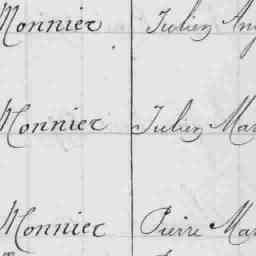 Monnier Julien Ang
Monnier Julien Mar
Monnier Pierre Mar